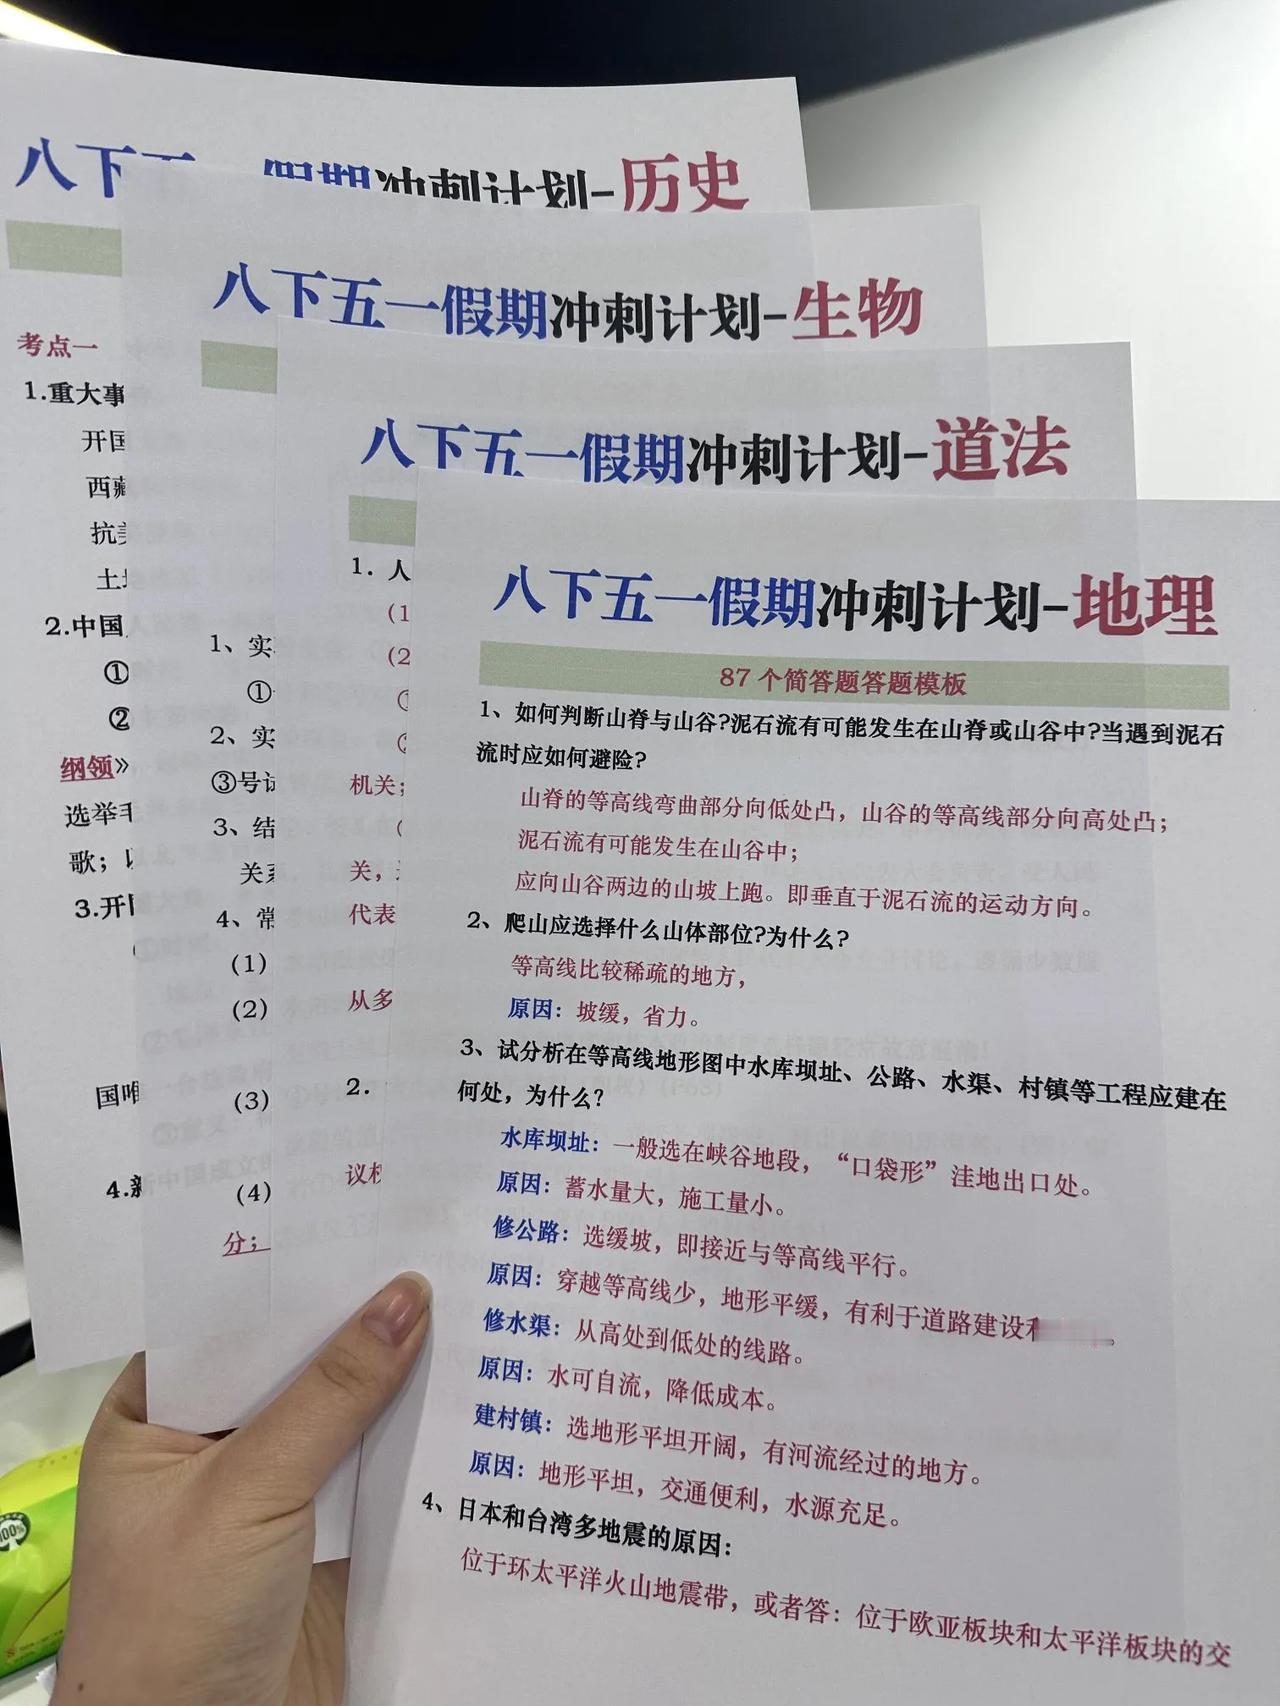 八下五 假期冲刺计划-历史
考点一
1.重大事
开国
西藏
抗美
土地
2.中国
①
②
纲领》
选举毛
歌；以
3.开国
国唯
4.新
八下五一假期冲刺计划-生物
1、实
①
2、实
③号试
3、结
关系
4、常
(1)
(2)
(3)
(4)
分；
八下五一假期冲刺计划-道法
1. 人
(1
(2
①
②
机关；
关，
代表
从多
2.
议权
八下五一假期冲刺计划-地理
87个简答题答题模板
1、如何判断山脊与山谷?泥石流有可能发生在山脊或山谷中?当遇到泥石
流时应如何避险?
山脊的等高线弯曲部分向低处凸，山谷的等高线部分向高处凸；
泥石流有可能发生在山谷中；
应向山谷两边的山坡上跑。即垂直于泥石流的运动方向。
2、爬山应选择什么山体部位?为什么?
等高线比较稀疏的地方，
原因：坡缓，省力。
3、试分析在等高线地形图中水库坝址、公路、水渠、村镇等工程应建在
何处，为什么?
水库坝址：一般选在峡谷地段，“口袋形”洼地出口处。
原因：蓄水量大，施工量小。
修公路：选缓坡，即接近与等高线平行。
原因：穿越等高线少，地形平缓，有利于道路建设
修水渠：从高处到低处的线路。
原因：水可自流，降低成本。
建村镇：选地形平坦开阔，有河流经过的地方。
原因：地形平坦，交通便利，水源充足。
4、日本和台湾多地震的原因：
位于环太平洋火山地震带，或者答：位于欧亚板块和太平洋板块的交
100%